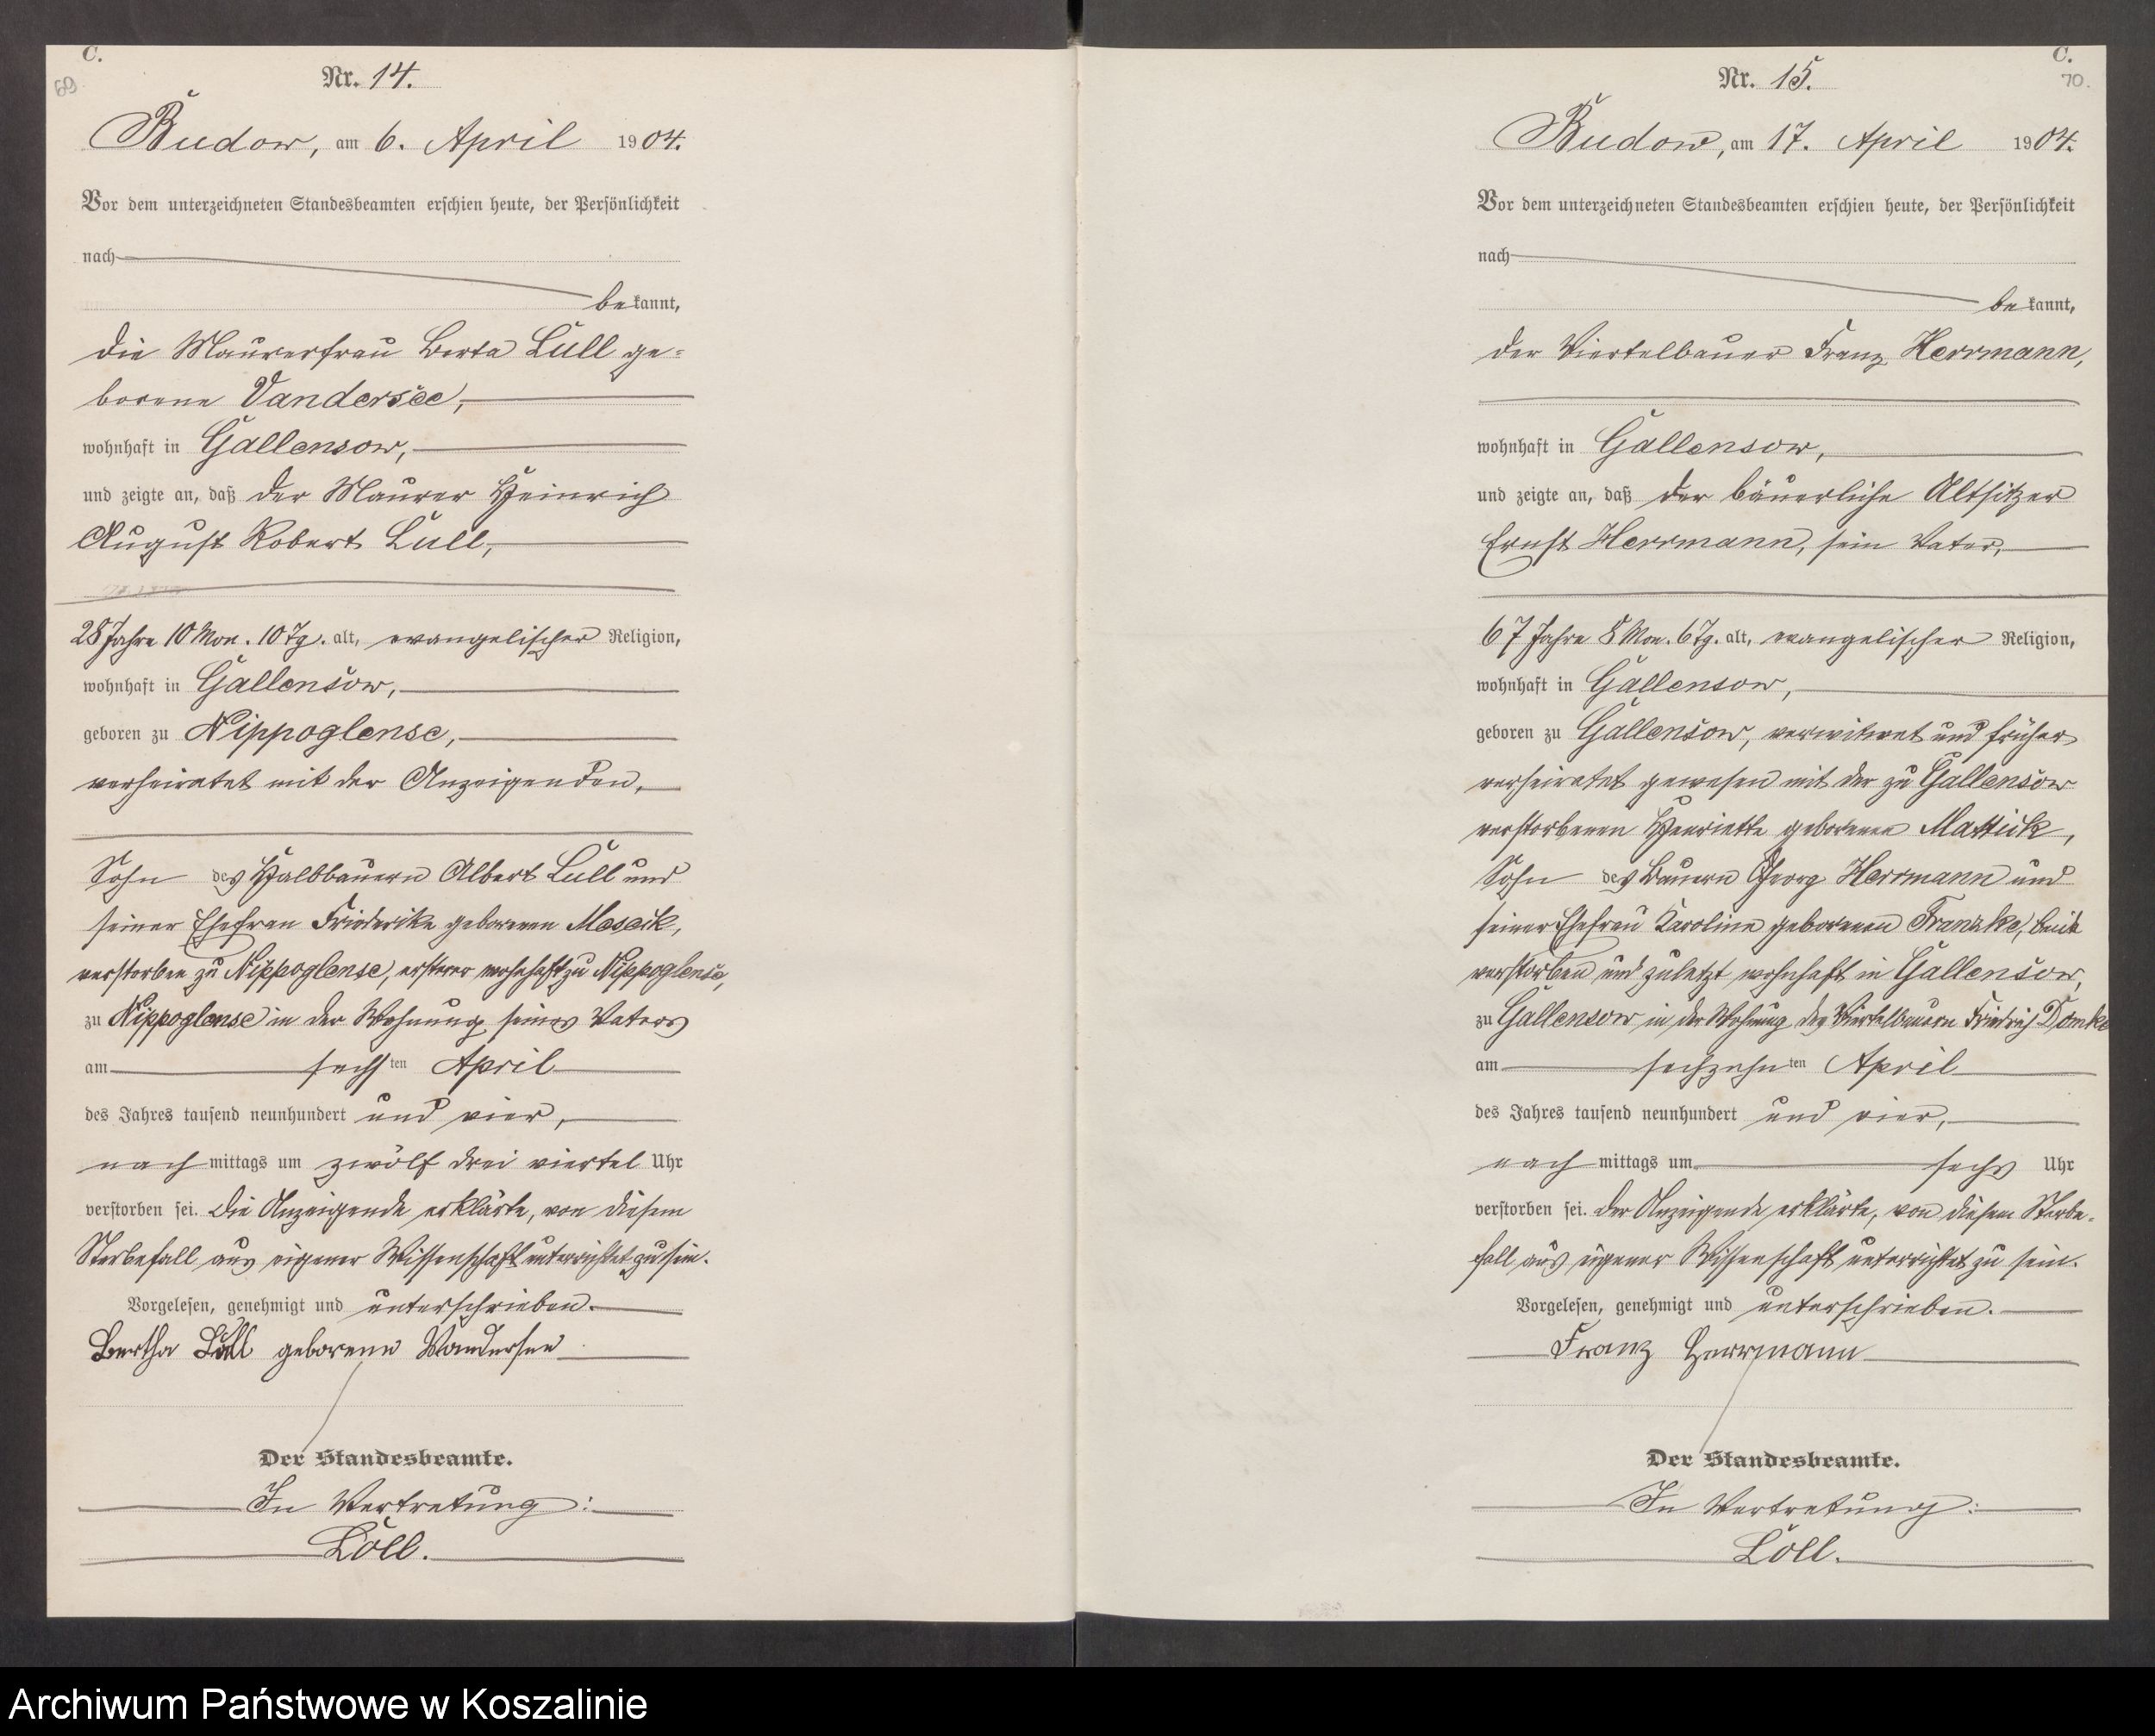 C.
69.
Nr. 14.
Budow, am 6. April 1904.
Vor dem unterzeichneten Standesbeamten erschien heute, der Persönlichkeit
nach
bekannt,
die Maurerfrau Berta Lüll ge-
borene Vandersee,
wohnhaft in Gallensow,
und zeigte an, daß der Maurer Heinrich
August Robert Lüll,
28 Jahre 10 Mon. 10 Tg. alt, evangelischer Religion,
wohnhaft in Gallensow,
geboren zu Nippoglense,
verheiratet mit der Anzeigenden,
Sohn des Halbbauern Albert Lüll und
seiner Ehefrau Friederike geborenen
verstorben zu Nippoglense, ersterer wohnhaft zu Nippoglense,
zu Nippoglense in der Wohnung seines Vaters
am sechsten April
des Jahres tausend neunhundert und vier,
nachmittags um zwölf drei viertel Uhr
verstorben sei. Die Anzeigende erklärte, von diesem
Sterbefall aus eigener Wissenschaft unterrichtet zu sein.
Vorgelesen, genehmigt und unterschrieben.
Bertha Lüll geborene Vandersee
Der Standesbeamte.
In Vertretung:
Löll.
C.
70.
Nr. 15.
Budow, am 17. April 1904.
Vor dem unterzeichneten Standesbeamten erschien heute, der Persönlichkeit
nach
bekannt,
der Viertelbauer Franz Herrmann,
wohnhaft in Gallensow,
und zeigte an, daß der bäuerliche Altsitzer
Ernst Herrmann, sein Vater,
67 Jahre 8 Mon. 6 Tg. alt, evangelischer Religion,
wohnhaft in Gallensow,
geboren zu Gallensow, verwitwet und früher
verheiratet gewesen mit der zu Gallensow
verstorbenen Henriette geborenen Mattick,
Sohn des Bauern Georg Herrmann und
seiner Ehefrau Karoline geborenen Franzke, beide
verstorben und zuletzt wohnhaft in Gallensow,
zu Gallensow in der Wohnung des Viertelbauern Friedrich Domke
am sechzehnten April
des Jahres tausend neunhundert und vier,
nachmittags um sechs Uhr
verstorben sei. Der Anzeigende erklärte, von diesem Sterbe-
fall aus eigener Wissenschaft unterrichtet zu sein.
Vorgelesen, genehmigt und unterschrieben.
Franz Herrmann
Der Standesbeamte.
In Vertretung:
Löll.
Archiwum Państwowe w Koszalinie